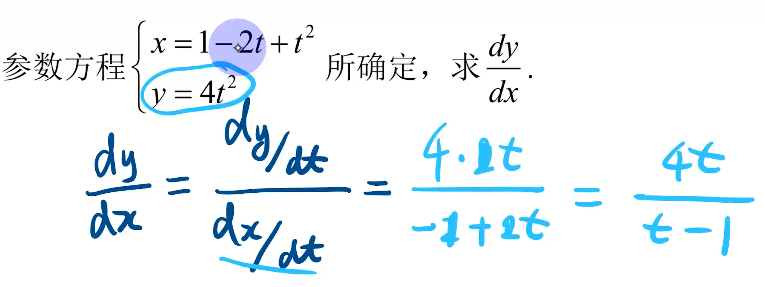 参数方程{ x = 1 − 2t + t² 所确定，求 dy/dx .
y = 4t²
dy/dx = (dy/dt)/(dx/dt) = (4·2t)/(−2+2t) = 4t/(t−1)